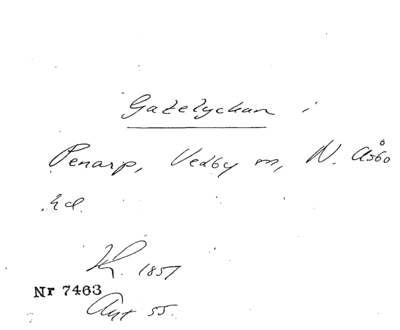 Gatelyckan i
Penarp, Vedby sn, N. Åsbo
hd.
Kh. 1857
Nr 7463
Avt 55.